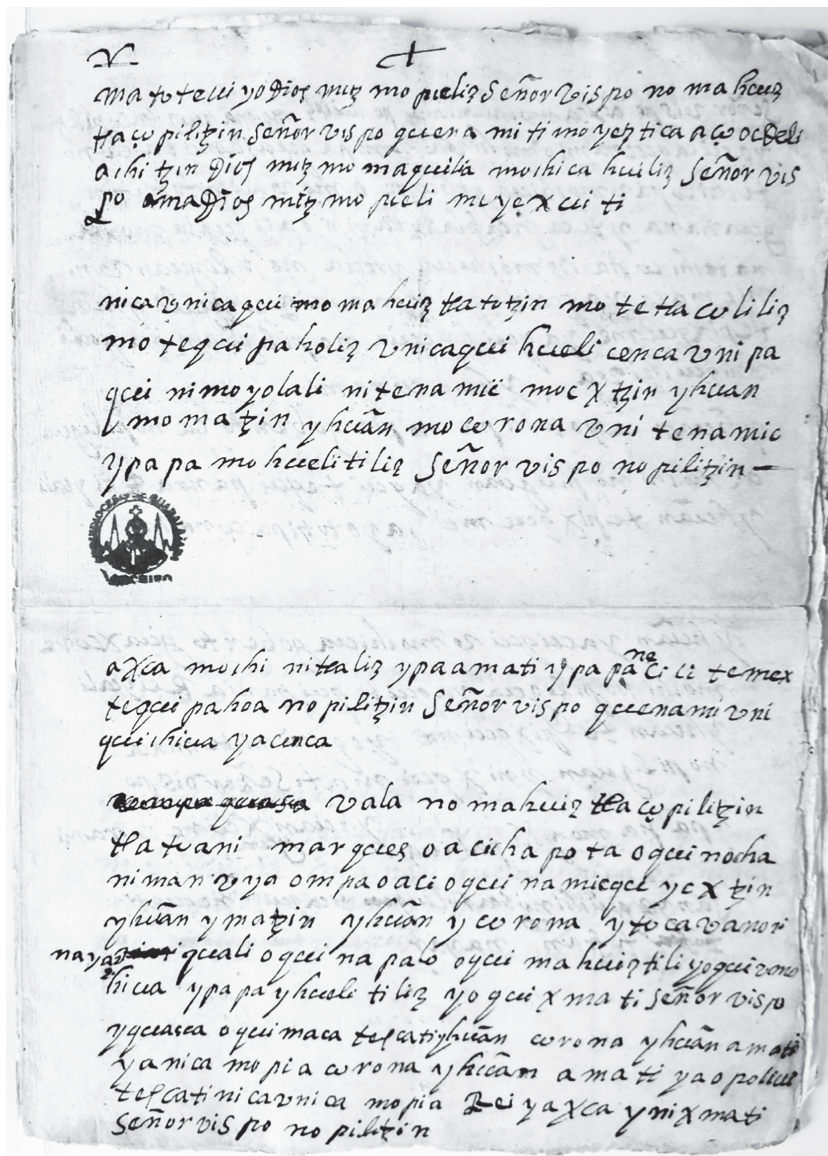 ma totecuiyo Dios mitz mo pieliz Señor vispo no mahcuiz
tlaço pilitzin Señor vispo qcuenami timoyeztica aço oc
achi tzin Dios mitz momaquilia mochicahcualiz Señor vis
po ma Dios mitz mo pieli miyexcuiti
nicavnicaqcui momahcuiz tlatotzin motetlaculiliz
moteqcuipaholiz vnicaqcui hcueli cenca vnipa
qcui nimoyolali nitenamic mocxtzin yhcuan
momatzin yhcuan mocorona vnitenamic
ypapa mohcuelitiliz Señor vispo nopilitzin
axca mochi nitlaliz ypa amati ypapa ne ci ci temex
teqcuipahoa nopilitzin Señor vispo qcuenami vni
qcuichicua yacenca
vala nomahcuiz tlaço pilitzin
tlatuani marqcues oacicha pota oqcuinocha
niman vya ompa oaci oqcuinamicqcui ycxtzin
yhcuan ymatzin yhcuan ycorona ytoca vanori
naya qcuali oqcuinapalo oqcuimahcuiztili yoqcui
hicua ypapa yhcuelitiliz yoqcuixmati Señor vispo
yqcuasca oqcuimaca tescati yhcuan corona yhcuan amati
yanica mopia corona yhcuan amati yaopoliuh
tescati nicavnica mopia Rei yaxca ynixmati
Señor vispo nopilitzin